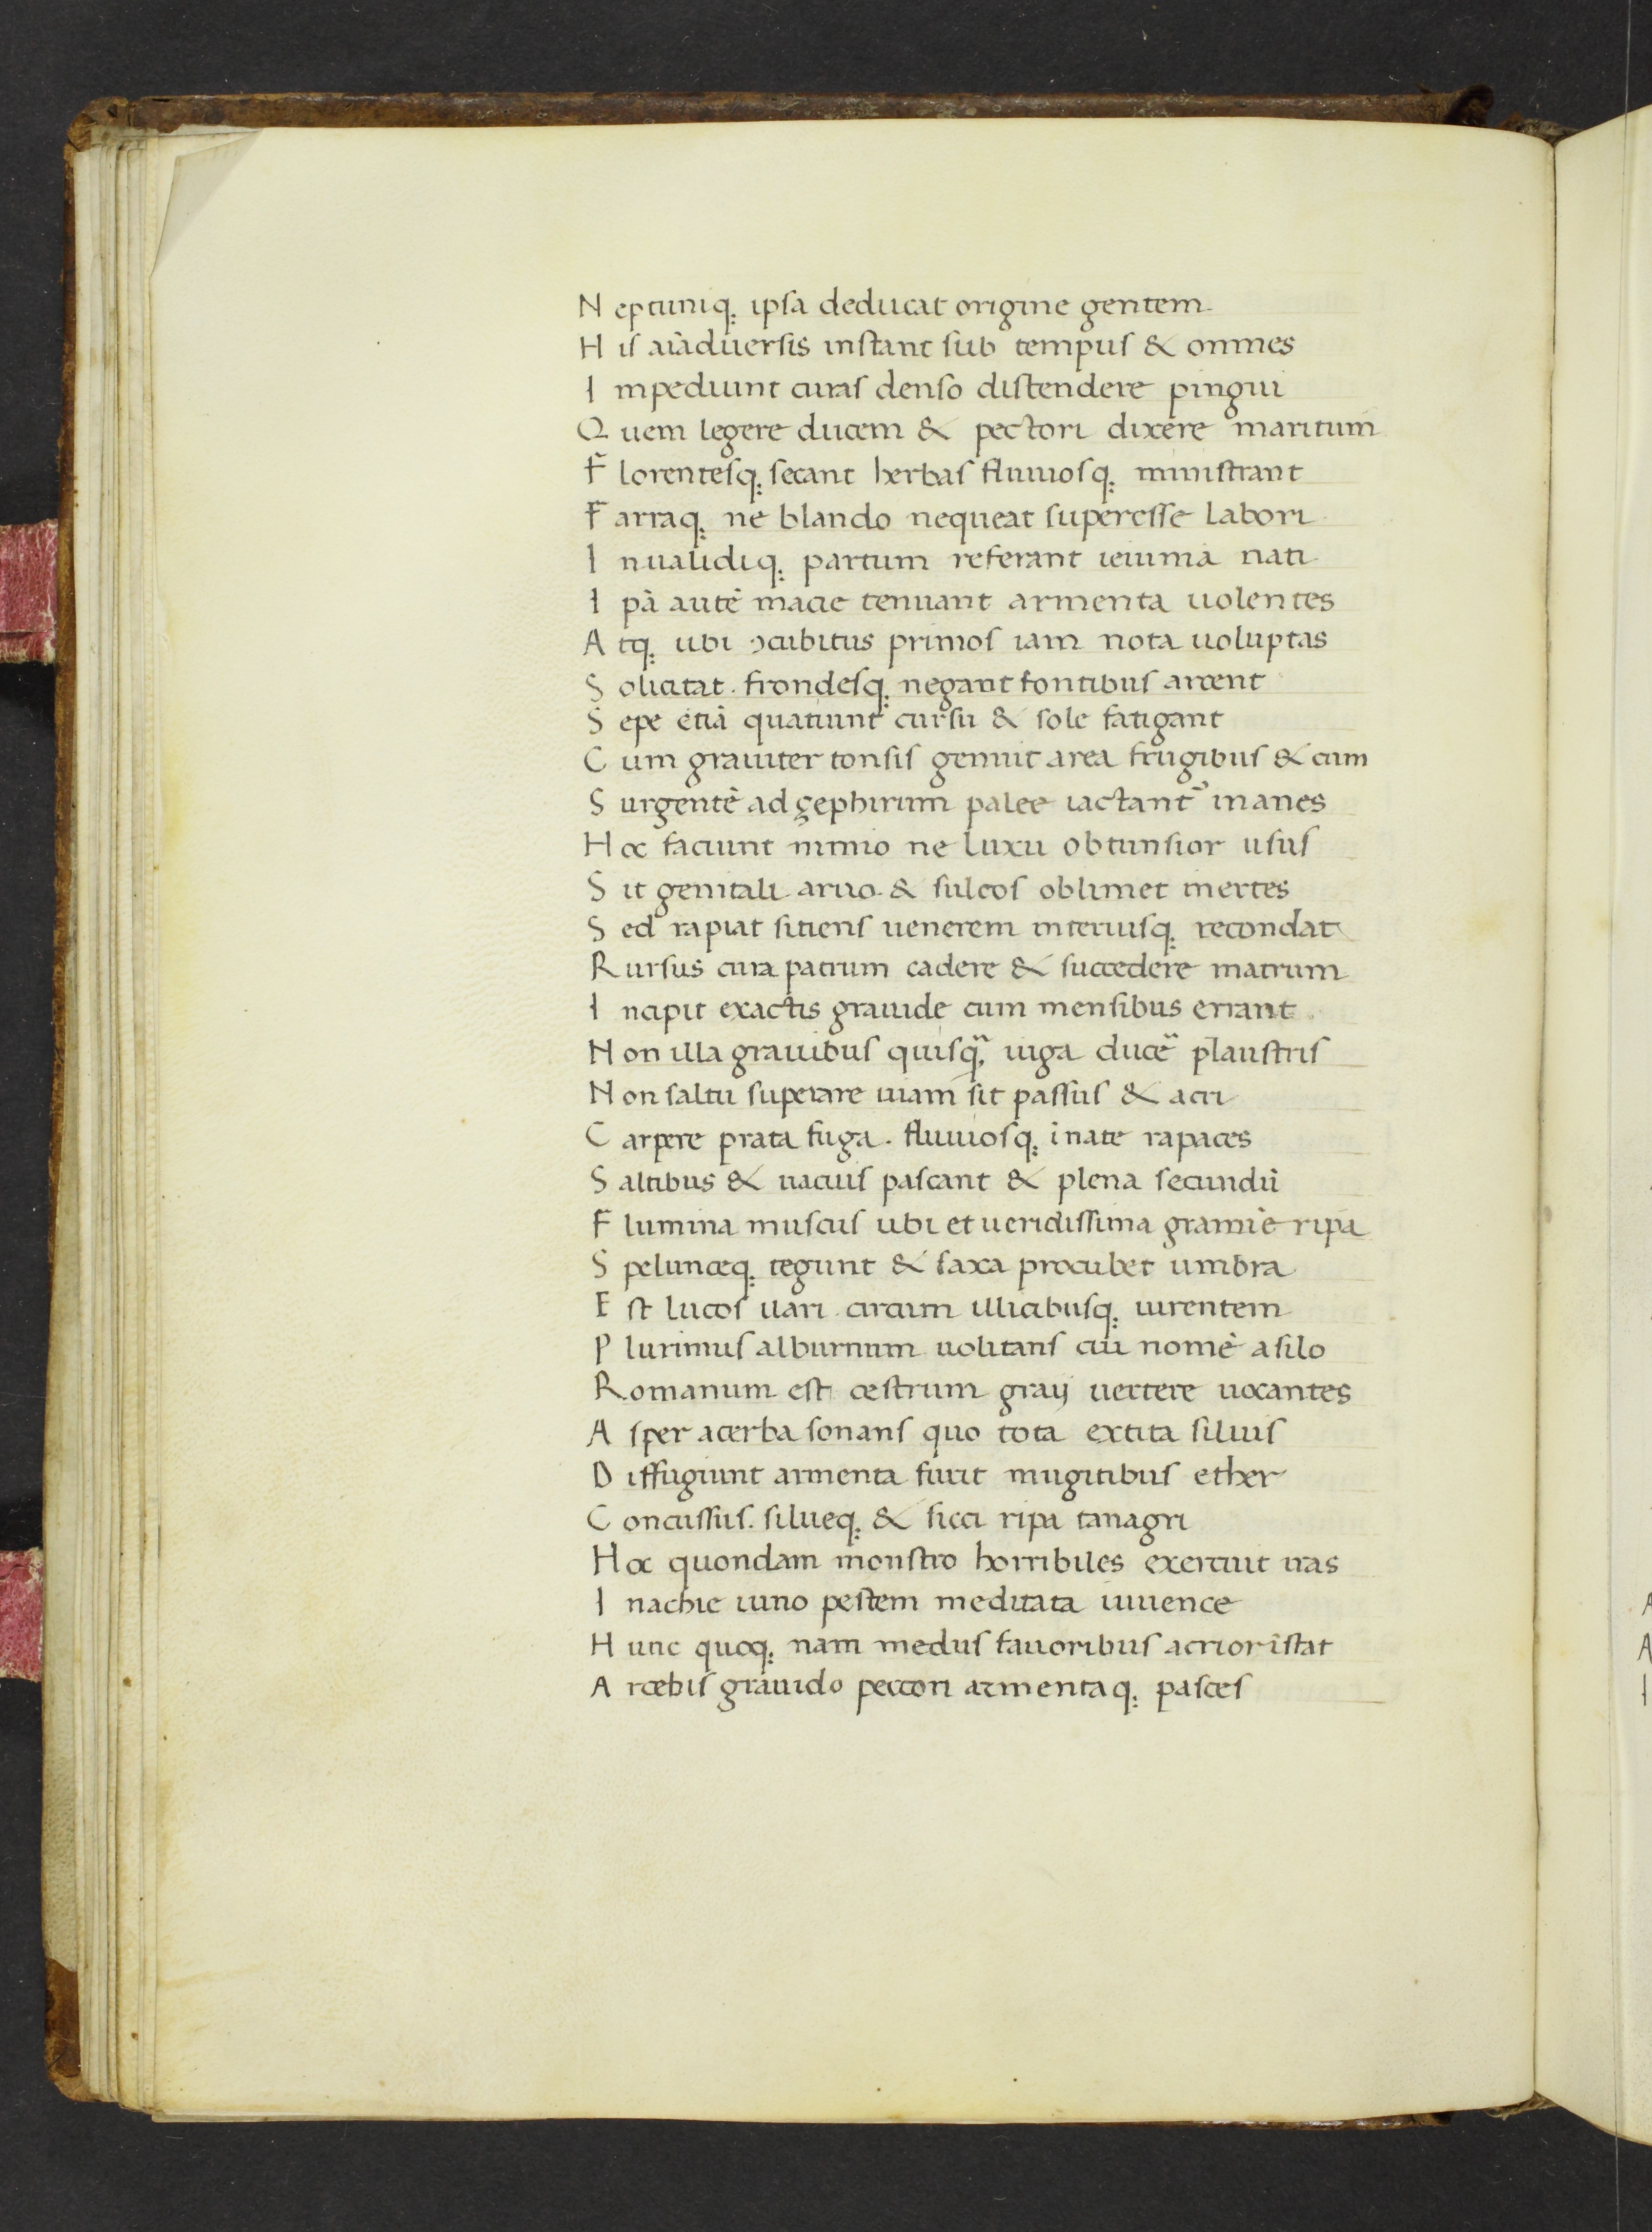 Neptuniq; ipsa deducat origine gentem
His aiãduersis instant sub tempus & omnes
Impediunt curas denso distendere pingui
Quem legere ducem & pectori dixere maritum
Florentesq; secant herbas fluuiosq; ministrant
Farraq; ne blando nequeat superesse labori
Inualidiq; partum referant ieiunia nati
Ipã autẽ macie tenuant armenta uolentes
Atq; ubi ꝯcubitus primos iam nota uoluptas
Solicitat. frondesq; negant fontibus arcent
Sepe etiã quatiunt cursu & sole fatigant
Cum grauiter tonsis gemit area frugibus & cum
Surgentẽ ad çephirum palee iactant᷑ inanes
Hoc faciunt nimio ne luxu obtunsior usus
Sit genitali aruo. & sulcos oblimet inertes
Sed rapiat sitiens uenerem interiusq; recondat
Rursus cura patrum cadere & succedere matrum
Incipit exactis grauide cum mensibus errant
Non illa grauibus quisq̃; iuga ducẽ plaustris
Non saltu superare uiam sit passus & acri
Carpere prata fuga. fluuiosq; ĩnate rapaces
Saltibus & uacuis pascant & plena secundũ
Flumina muscus ubi et ueridissima gramiẽ ripa
Speluncęq; tegunt & saxa procubet umbra
Est lucos ilari circum illicibusq; uirentem
Plurimus alburnum uolitans cui nomẽ asilo
Romanum est oestrum graij uertere uocantes
Asper acerba sonans quo tota extita siluis
Diffugiunt armenta furit mugitibus ether
Concussus. silueq; & sicci ripa tanagri
Hoc quondam monstro horribiles exercuit iras
Inachie iuno pestem meditata iuuence
Hunc quoq; nam medus fauoribus acrior ĩstat
Arcebis grauido peccori armentaq; pasces